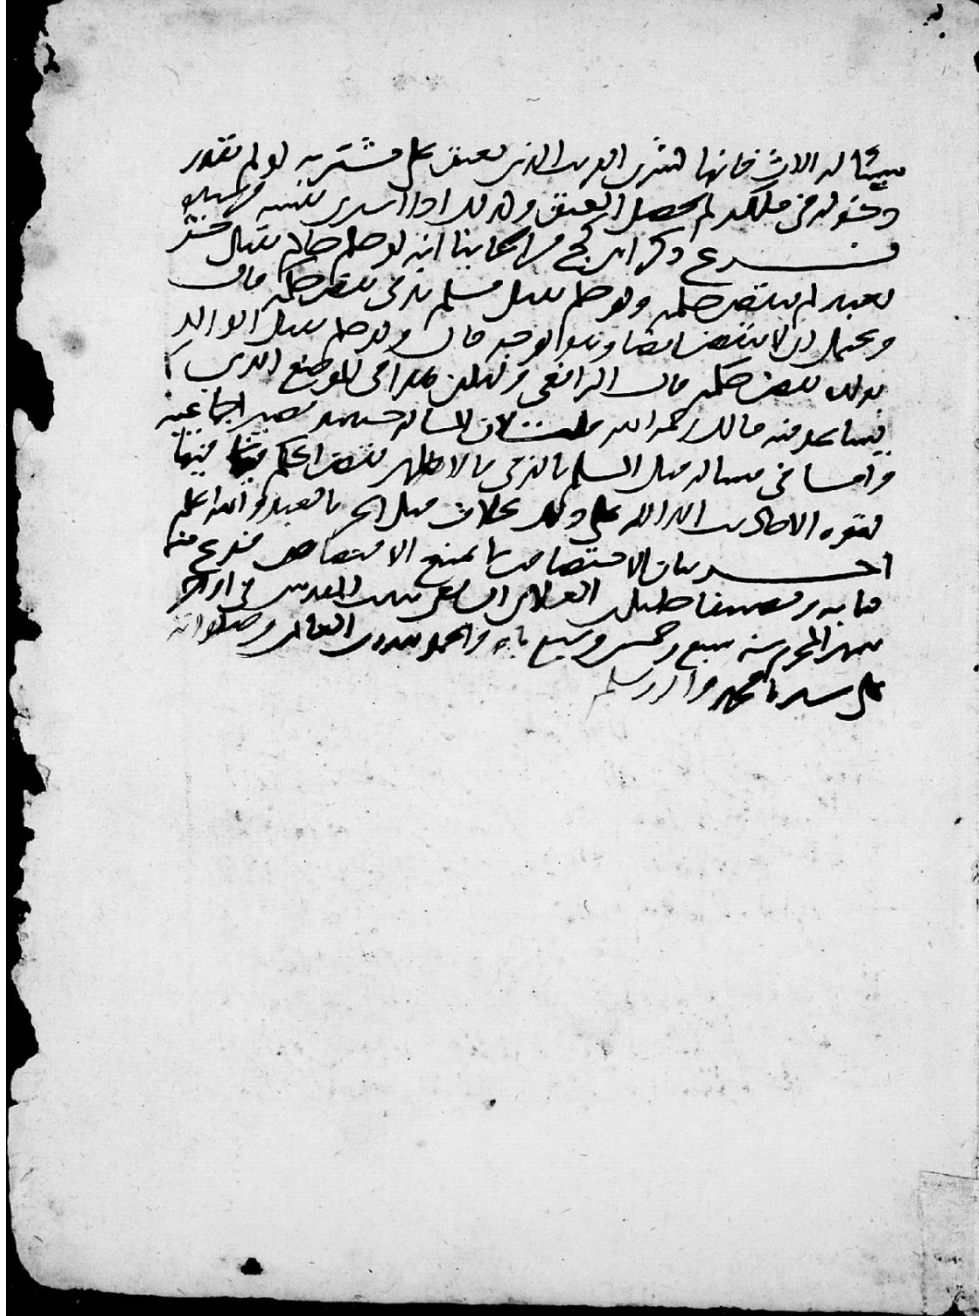 مسألة الارث فانها كشرى القريب الذي يعتق على مشتريه لو لم يقدر
دخوله في ملكه لم يحصل العتق وكذلك اذا اشترى نفسه من سيده
فرع ذكر ابن كج من اصحابنا انه لو حكم حاكم بقتل حر
بعبد لم ينقض حكمه ولو حكم بقتل مسلم بذمي نقض حكمه قال
ويحتمل ان لا ينقض ايضا وهو الوجه قال ولو حكم بقتل الوالد
بولده نقض حكمه قال الرافعي وليكن هذا في الموضع الذي لا
يساعد فيه مالك رحمه الله قلت لان المسألة حينئذ تصير اجماعية
واما في مسألة قتل المسلم بالذمي فالاظهر نقض الحكم فيها
لقوة الاحاديث الدالة على ذلك بخلاف قتل الحر بالعبد والله اعلم
اخر بيان الاختصاص بالمنع الاقتصاص فرغ منه
كتابة وتصنيفا خليل العلائي الشافعي ببيت المقدس في اواخر
شهر المحرم سنة سبع وخمسين وسبع مائة والحمد لله رب العالمين وصلواته
على سيدنا محمد واله وسلم